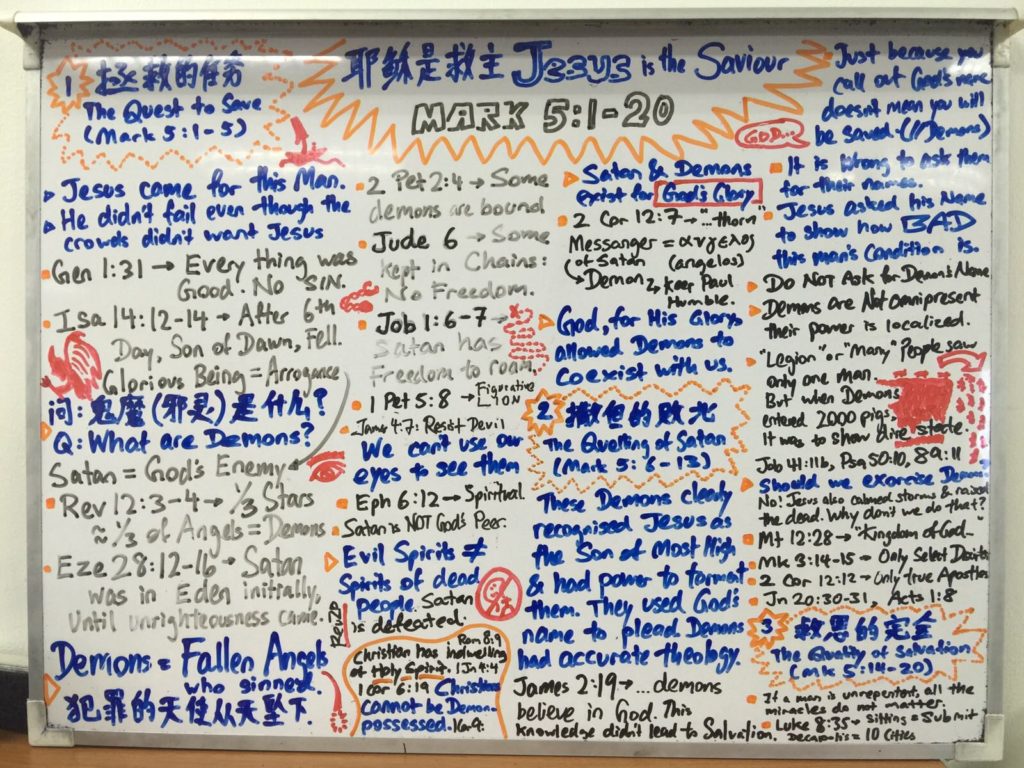 耶稣是救主 Jesus is the Saviour
MARK 5:1-20
1 拯救的任务
The Quest to Save
(Mark 5:1-5)
Jesus came for this Man.
He didn't fail even though the
crowds didn't want Jesus
Gen 1:31 → Every thing was
Good. No SIN.
Isa 14:12-14 → After 6th
Day, Son of Dawn, Fell.
Glorious Being = Arrogance
问: 鬼魔(邪灵)是什么?
Q: What are Demons?
Satan = God's Enemy
Rev 12:3-4 → 1/3 Stars
≈ 1/3 of Angels = Demons
Eze 28:12-16 → Satan
was in Eden initially,
Until unrighteousness came.
Demons = Fallen Angels
who sinned.
犯罪的天使从天坠下.
2 Pet 2:4 → Some
demons are bound
Jude 6 → Some
kept in Chains:
No Freedom.
Job 1:6-7 →
Satan has
Freedom to roam.
1 Pet 5:8 → Figurative
LION
Jam 4:7: Resist Devil
We can't use our
eyes to see them
Eph 6:12 → Spiritual.
Satan is NOT God's Peer.
Evil Spirits ≠
Spirits of dead
people. Satan
is defeated.
Rom 8:9
Christian has indwelling
of Holy Spirit. 1 Jn 4:4
1 Cor 6:19 Christians
cannot be Demon-
possessed.
Satan & Demons
exist for God's Glory
2 Cor 12:7 → "... thorn"
Messanger = αγγελος
(of Satan (angelos)
Demon → Keep Paul
Humble.
God, for His Glory,
allowed Demons to
Coexist with us.
2 撒但的败光
The Quelling of Satan
(Mark 5:6-13)
These Demons clearly
recognised Jesus as
the Son of Most High
& had power to torment
them. They used God's
name to plead. Demons
had accurate theology.
James 2:19 → ... demons
believe in God. This
knowledge didn't lead to Salvation.
Just because you
call out God's name
doesn't mean you will
be saved. (//Demons)
GOD...
It is wrong to ask them
for their names.
Jesus asked his Name
to show how BAD
this man's Condition is.
Do NOT Ask for Demon's Name
Demons are Not omnipresent
their power is localized.
"Legion" or "Many" People saw
only one man.
But when Demons
entered 2000 pigs.
It was to show dire state.
Job 41:11b, Psa 50:10, 89:11
Should we exorcise Demons
No! Jesus also calmed storms & raised
the dead. Why don't we do that?
Mt 12:28 → "Kingdom of God"
Mk 3:14-15 → Only Select Disciples
2 Cor 12:12 → Only true Apostles
Jn 20:30-31, Acts 1:8
3 救恩的完全
The Quality of Salvation
(Mk 5:14-20)
If a man is unrepentent, all the
miracles do not matter.
Luke 8:35 → Sitting = Submit
Decapolis = 10 Cities